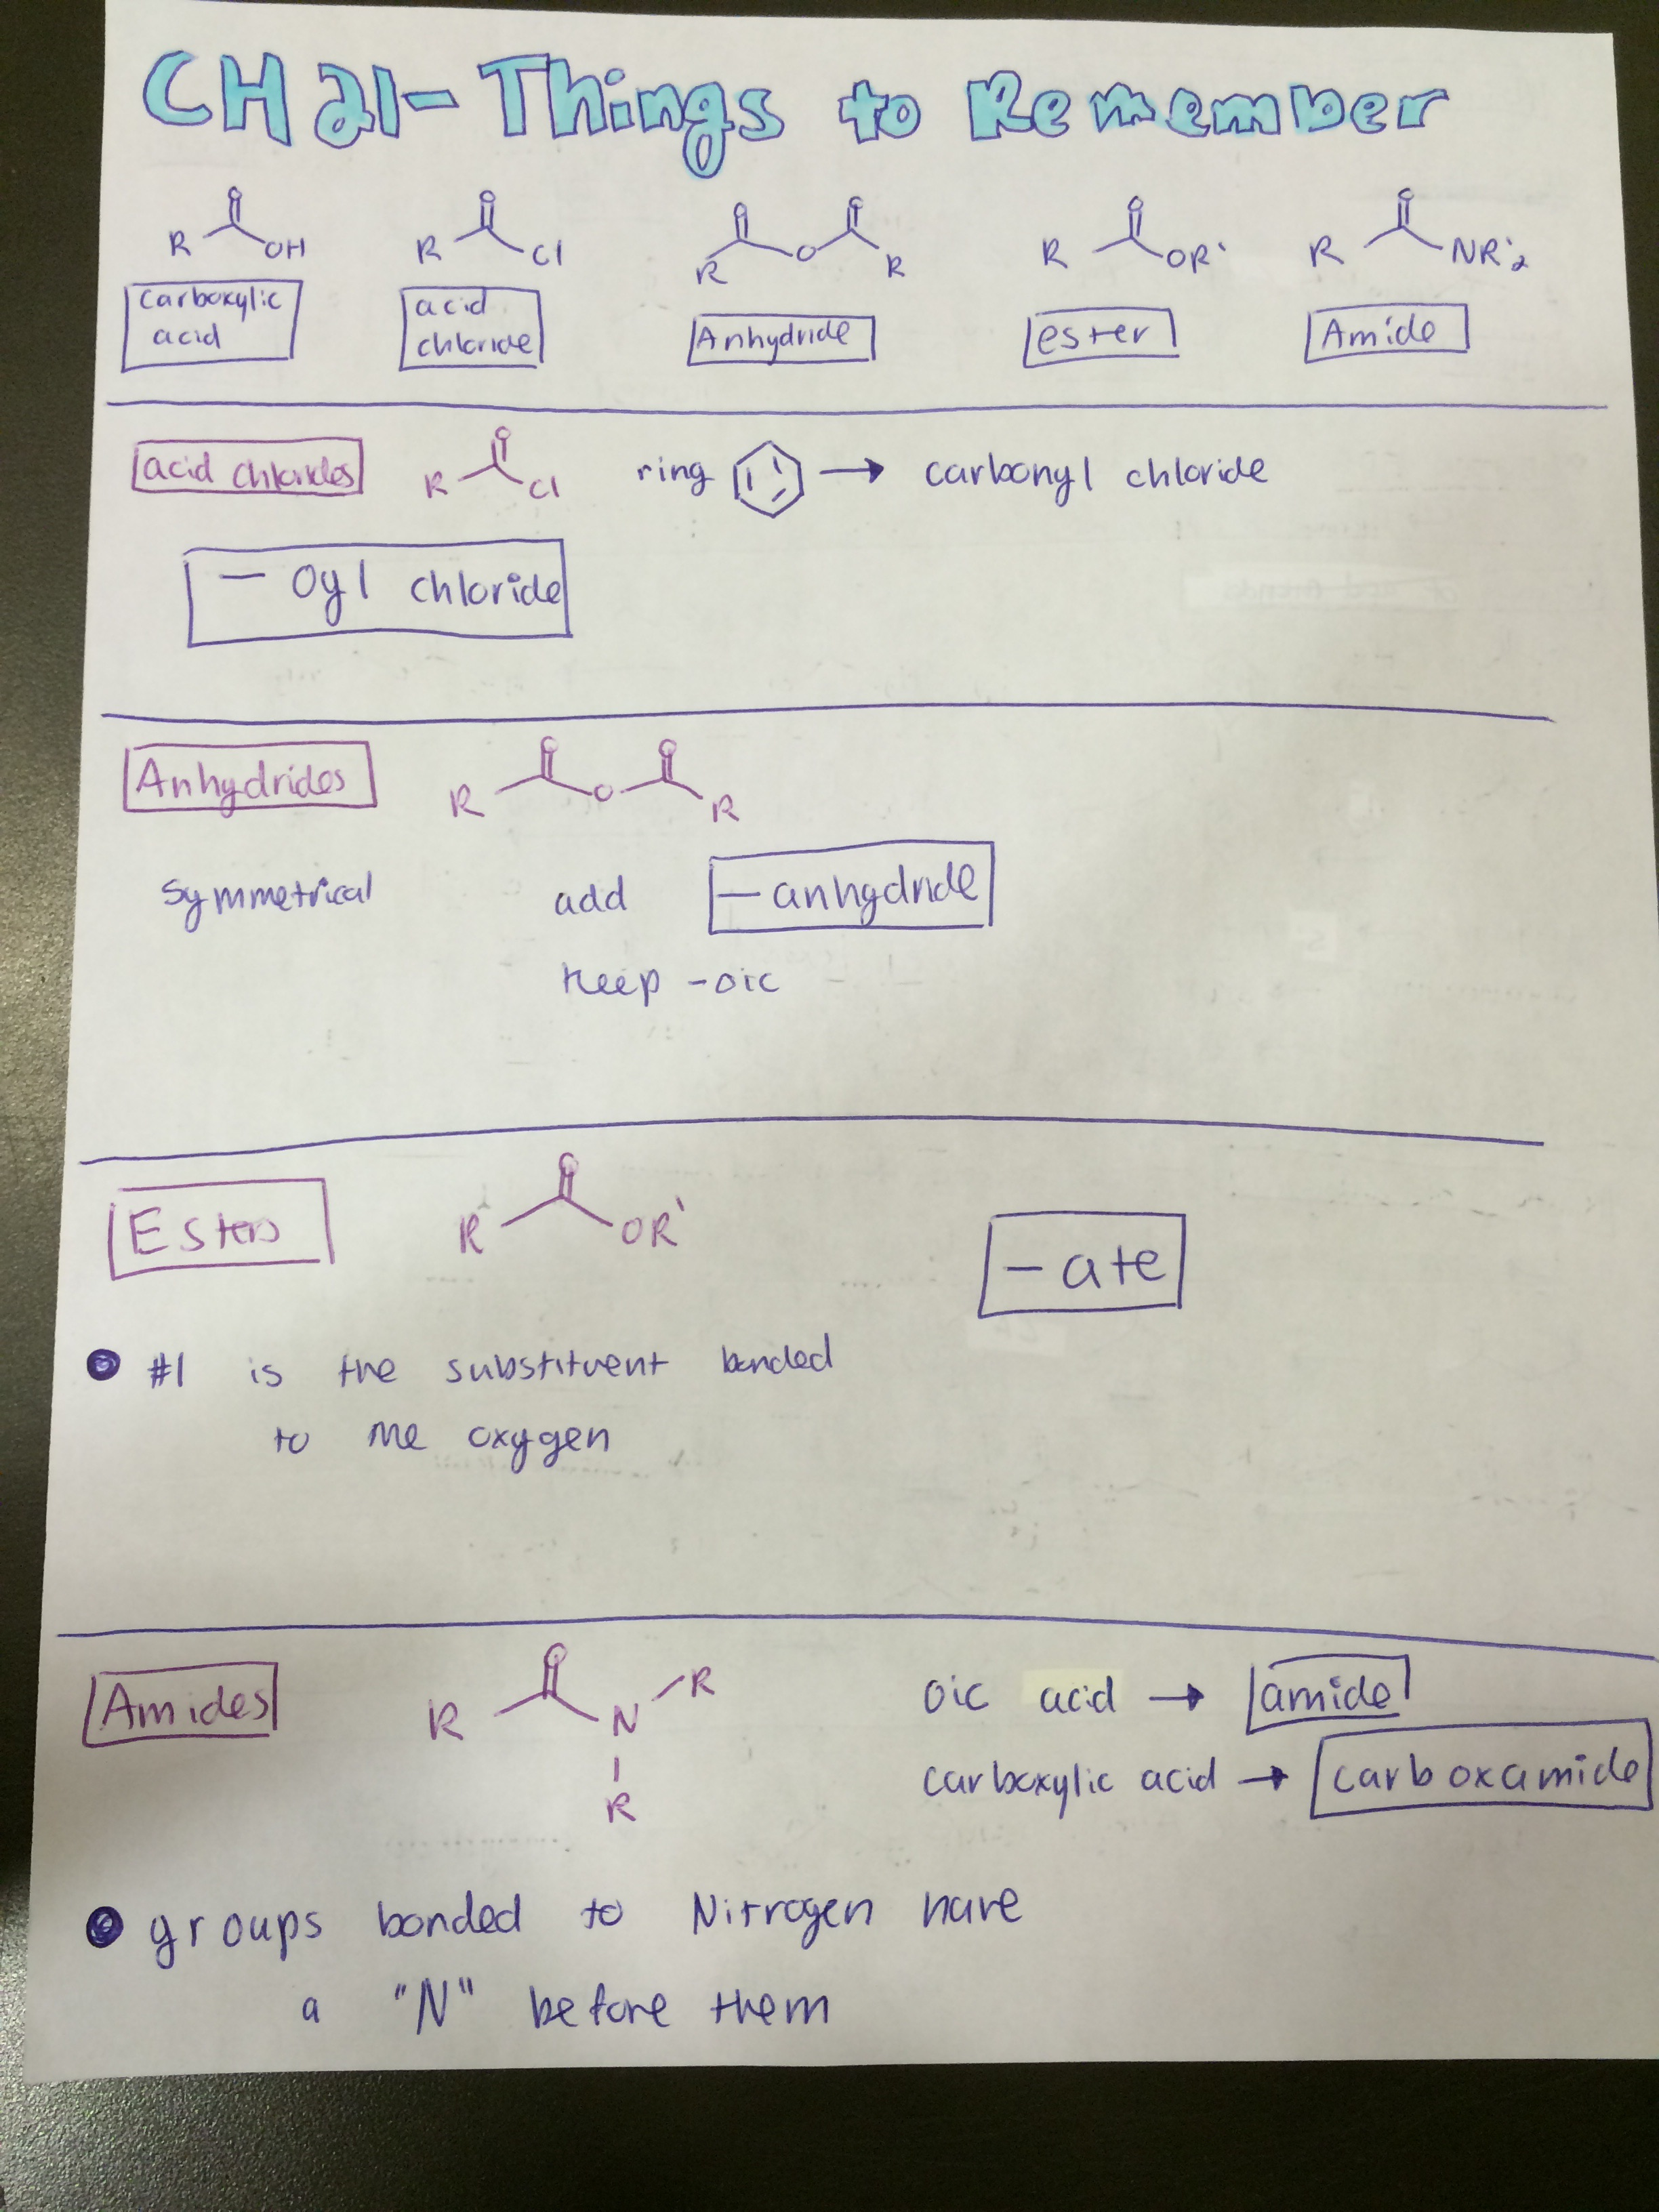 CH 21- Things to Remember
R O OH
R O Cl
R O O O R
R O OR'
R O NR'2
carboxylic
acid
acid
chloride
Anhydride
ester
Amide
acid chlorides R O Cl ring → carbonyl chloride
- oyl chloride
Anhydrides R O O O R
symmetrical add - anhydride
keep -oic
Esters R O OR' - ate
#1 is the substituent bonded
to the oxygen
Amides R O N R R
oic acid → amide
carboxylic acid → carboxamide
groups bonded to Nitrogen have
a "N" before them